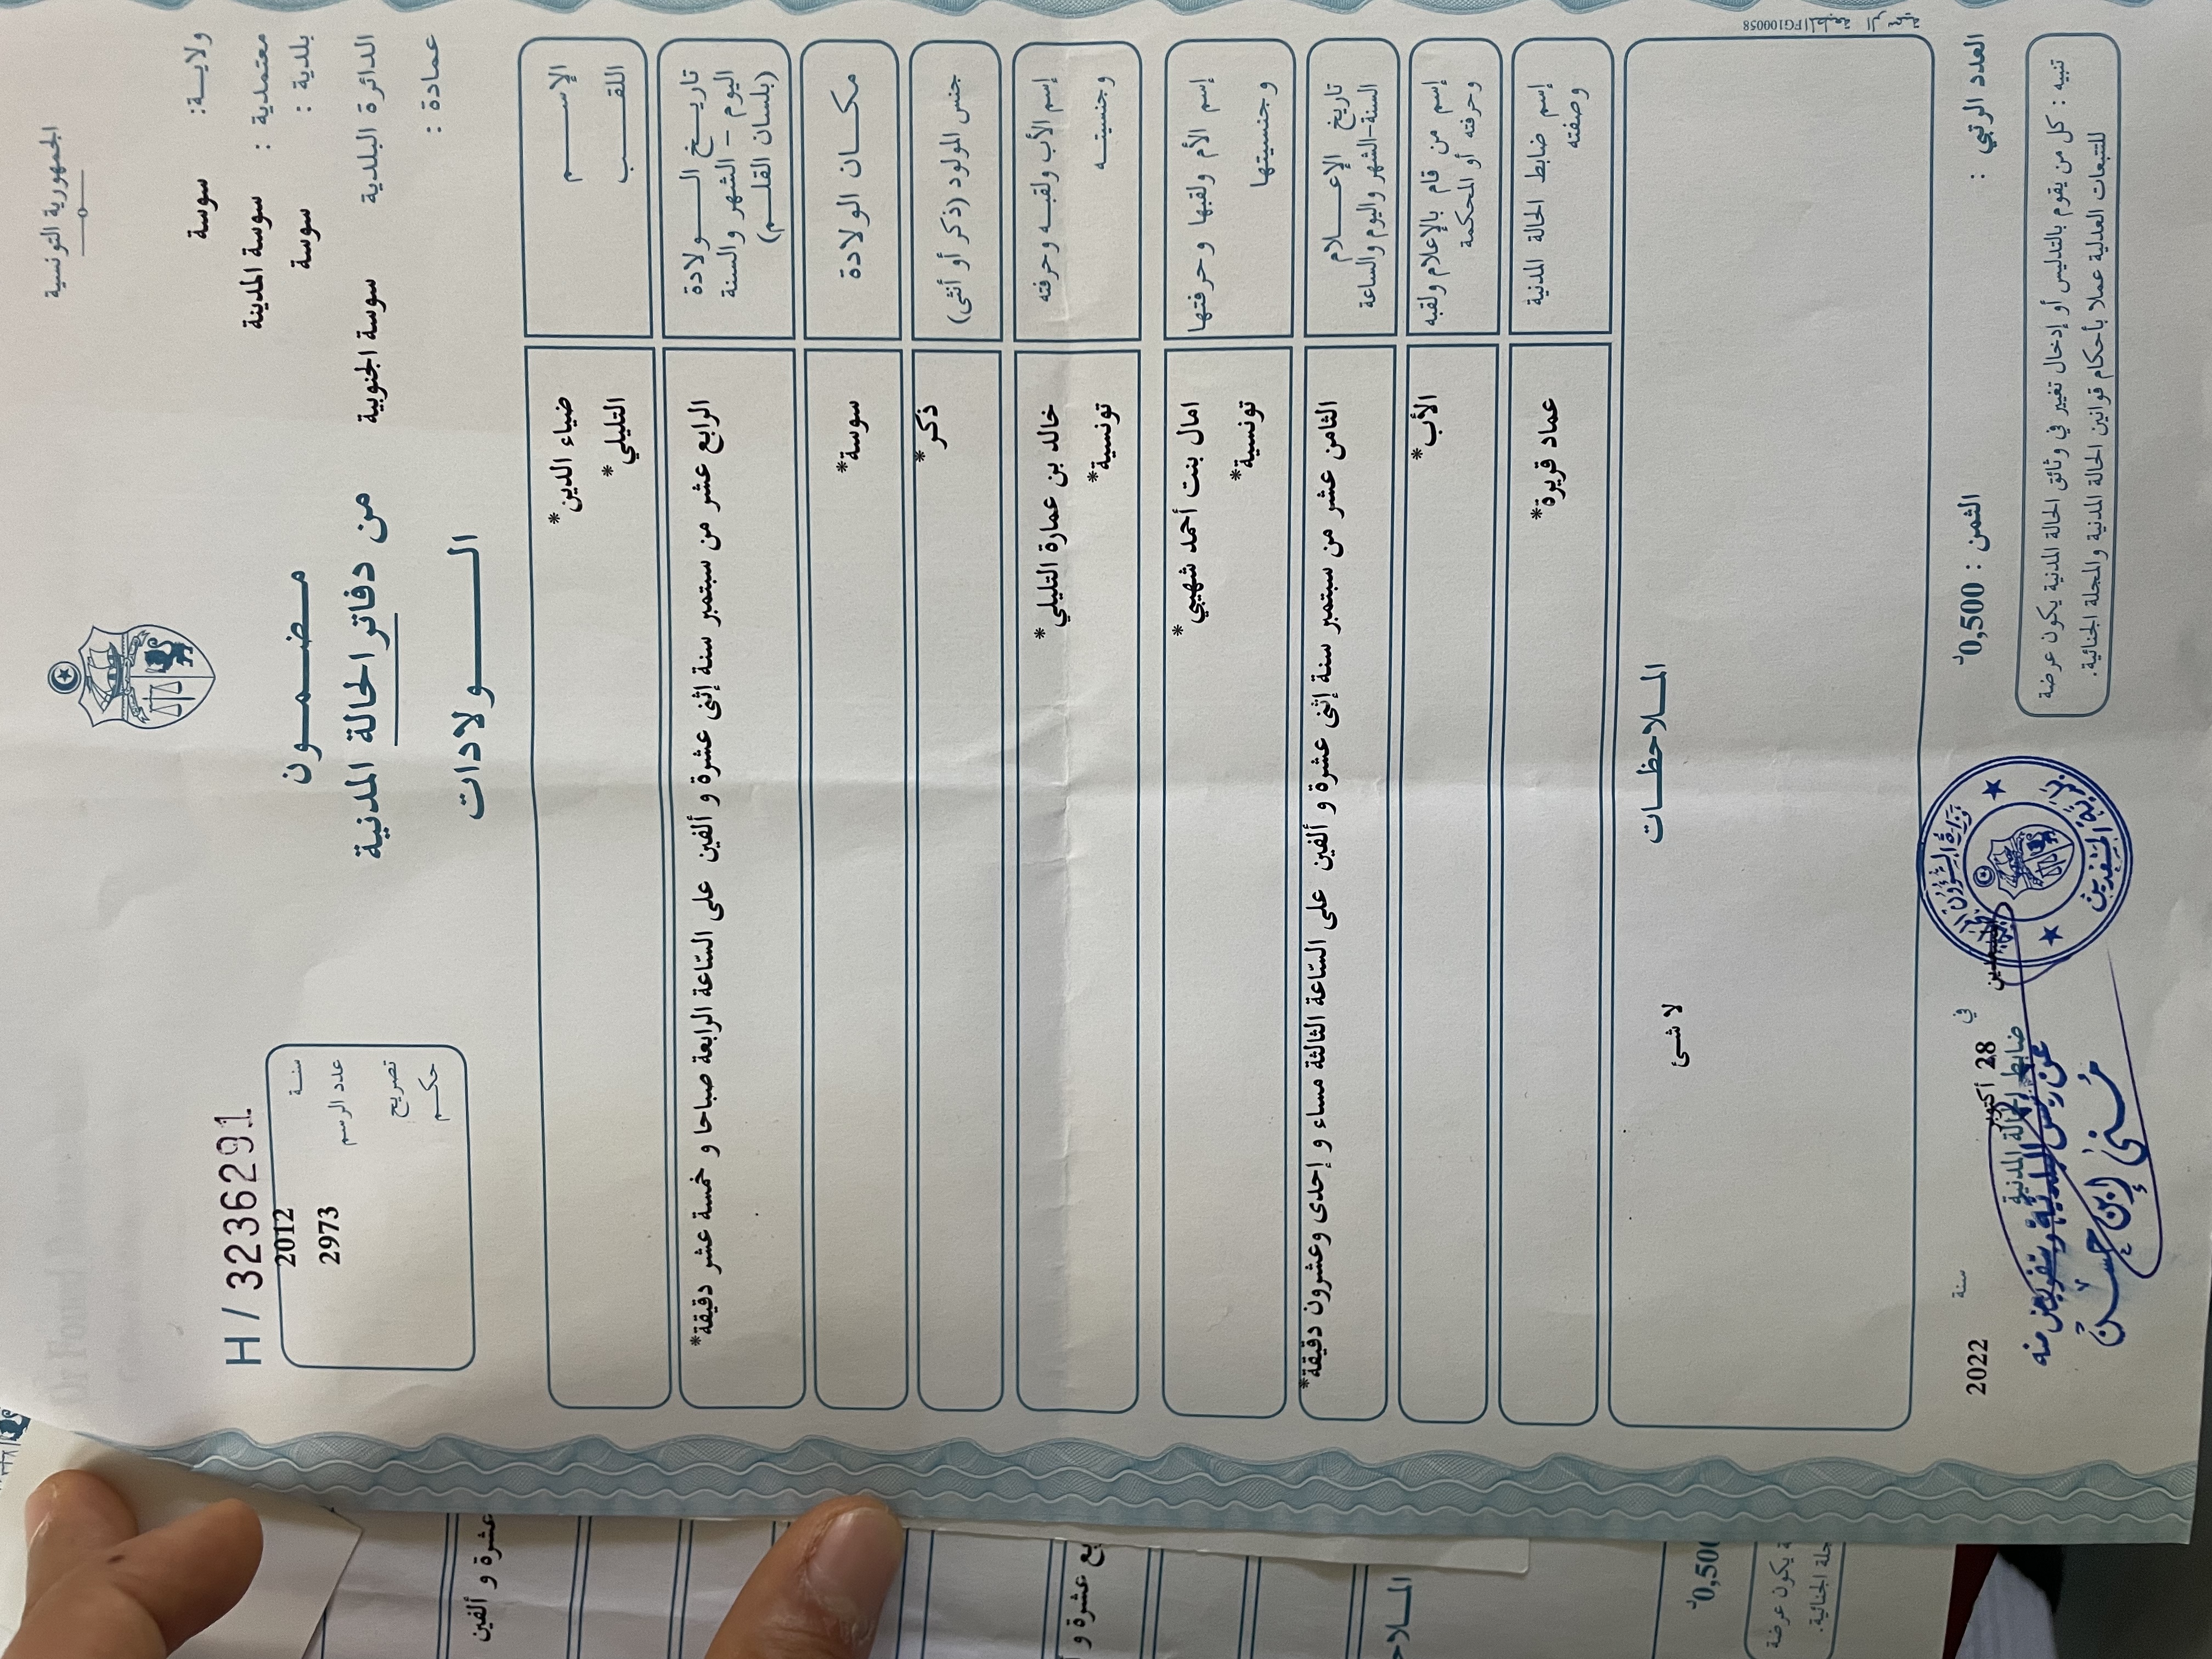 الجمهورية التونسية
ولايـــة : سوسة
معتمدية : سوسة المدينة
بلدية : سوسة
الدائرة البلدية سوسة الجنوبية
عمادة :
مـضـمـــون
من دفاتر الحالة المدنية
الـــــولادات
H / 3236291
سنــة 2012
عدد الرسم 2973
تصريح
حكــم
الإســـــم
اللقـــــب
ضياء الدين*
التليلي*
تاريـــخ الـــــولادة
اليوم - الشهر والسنة
(بلسان القلـــم)
الرابع عشر من سبتمبر سنة إثنى عشرة و ألفين على السّاعة الرابعة صباحا و خمسة عشر دقيقة*
مكـــان الولادة
سوسة*
جنس المولود (ذكر أو أنثى)
ذكر*
إسم الأب ولقبـــه وحرفته
وجنسيتـــه
خالد بن عمارة التليلي*
تونسية*
إسم الأم ولقبها وحرفتها
وجنسيتها
امال بنت أحمد شهيبي*
تونسية*
تاريخ الإعـــــلام
السنة-الشهر واليوم والساعة
الثامن عشر من سبتمبر سنة إثنى عشرة و ألفين على السّاعة الثالثة مساء و إحدى وعشرون دقيقة*
إسم من قام بالإعلام ولقبه
وحرفته أو المحكمة
الأب*
إسم ضابط الحالة المدنية
وصفته
عماد قريرة*
المـــلاحظـــات
لا شئ
المطبعة الرسمية FG100058
العدد الرتبي :
الثمن : 0,500د
في 28 أكتوبر سنة 2022
ضابط الحالة المدنية
عن رئيس البلدية وبتفويض منه
منى إبن حسن
تنبيه : كل من يقوم بالتدليس أو إدخال تغيير في وثائق الحالة المدنية يكون عرضة
للتتبعات العدلية عملا بأحكام قوانين الحالة المدنية والمجلة الجنائية.
عشرة و ألفين
بع عشرة و
الملاح
0,500د
ة يكون عرضة
جلة الجنائية.